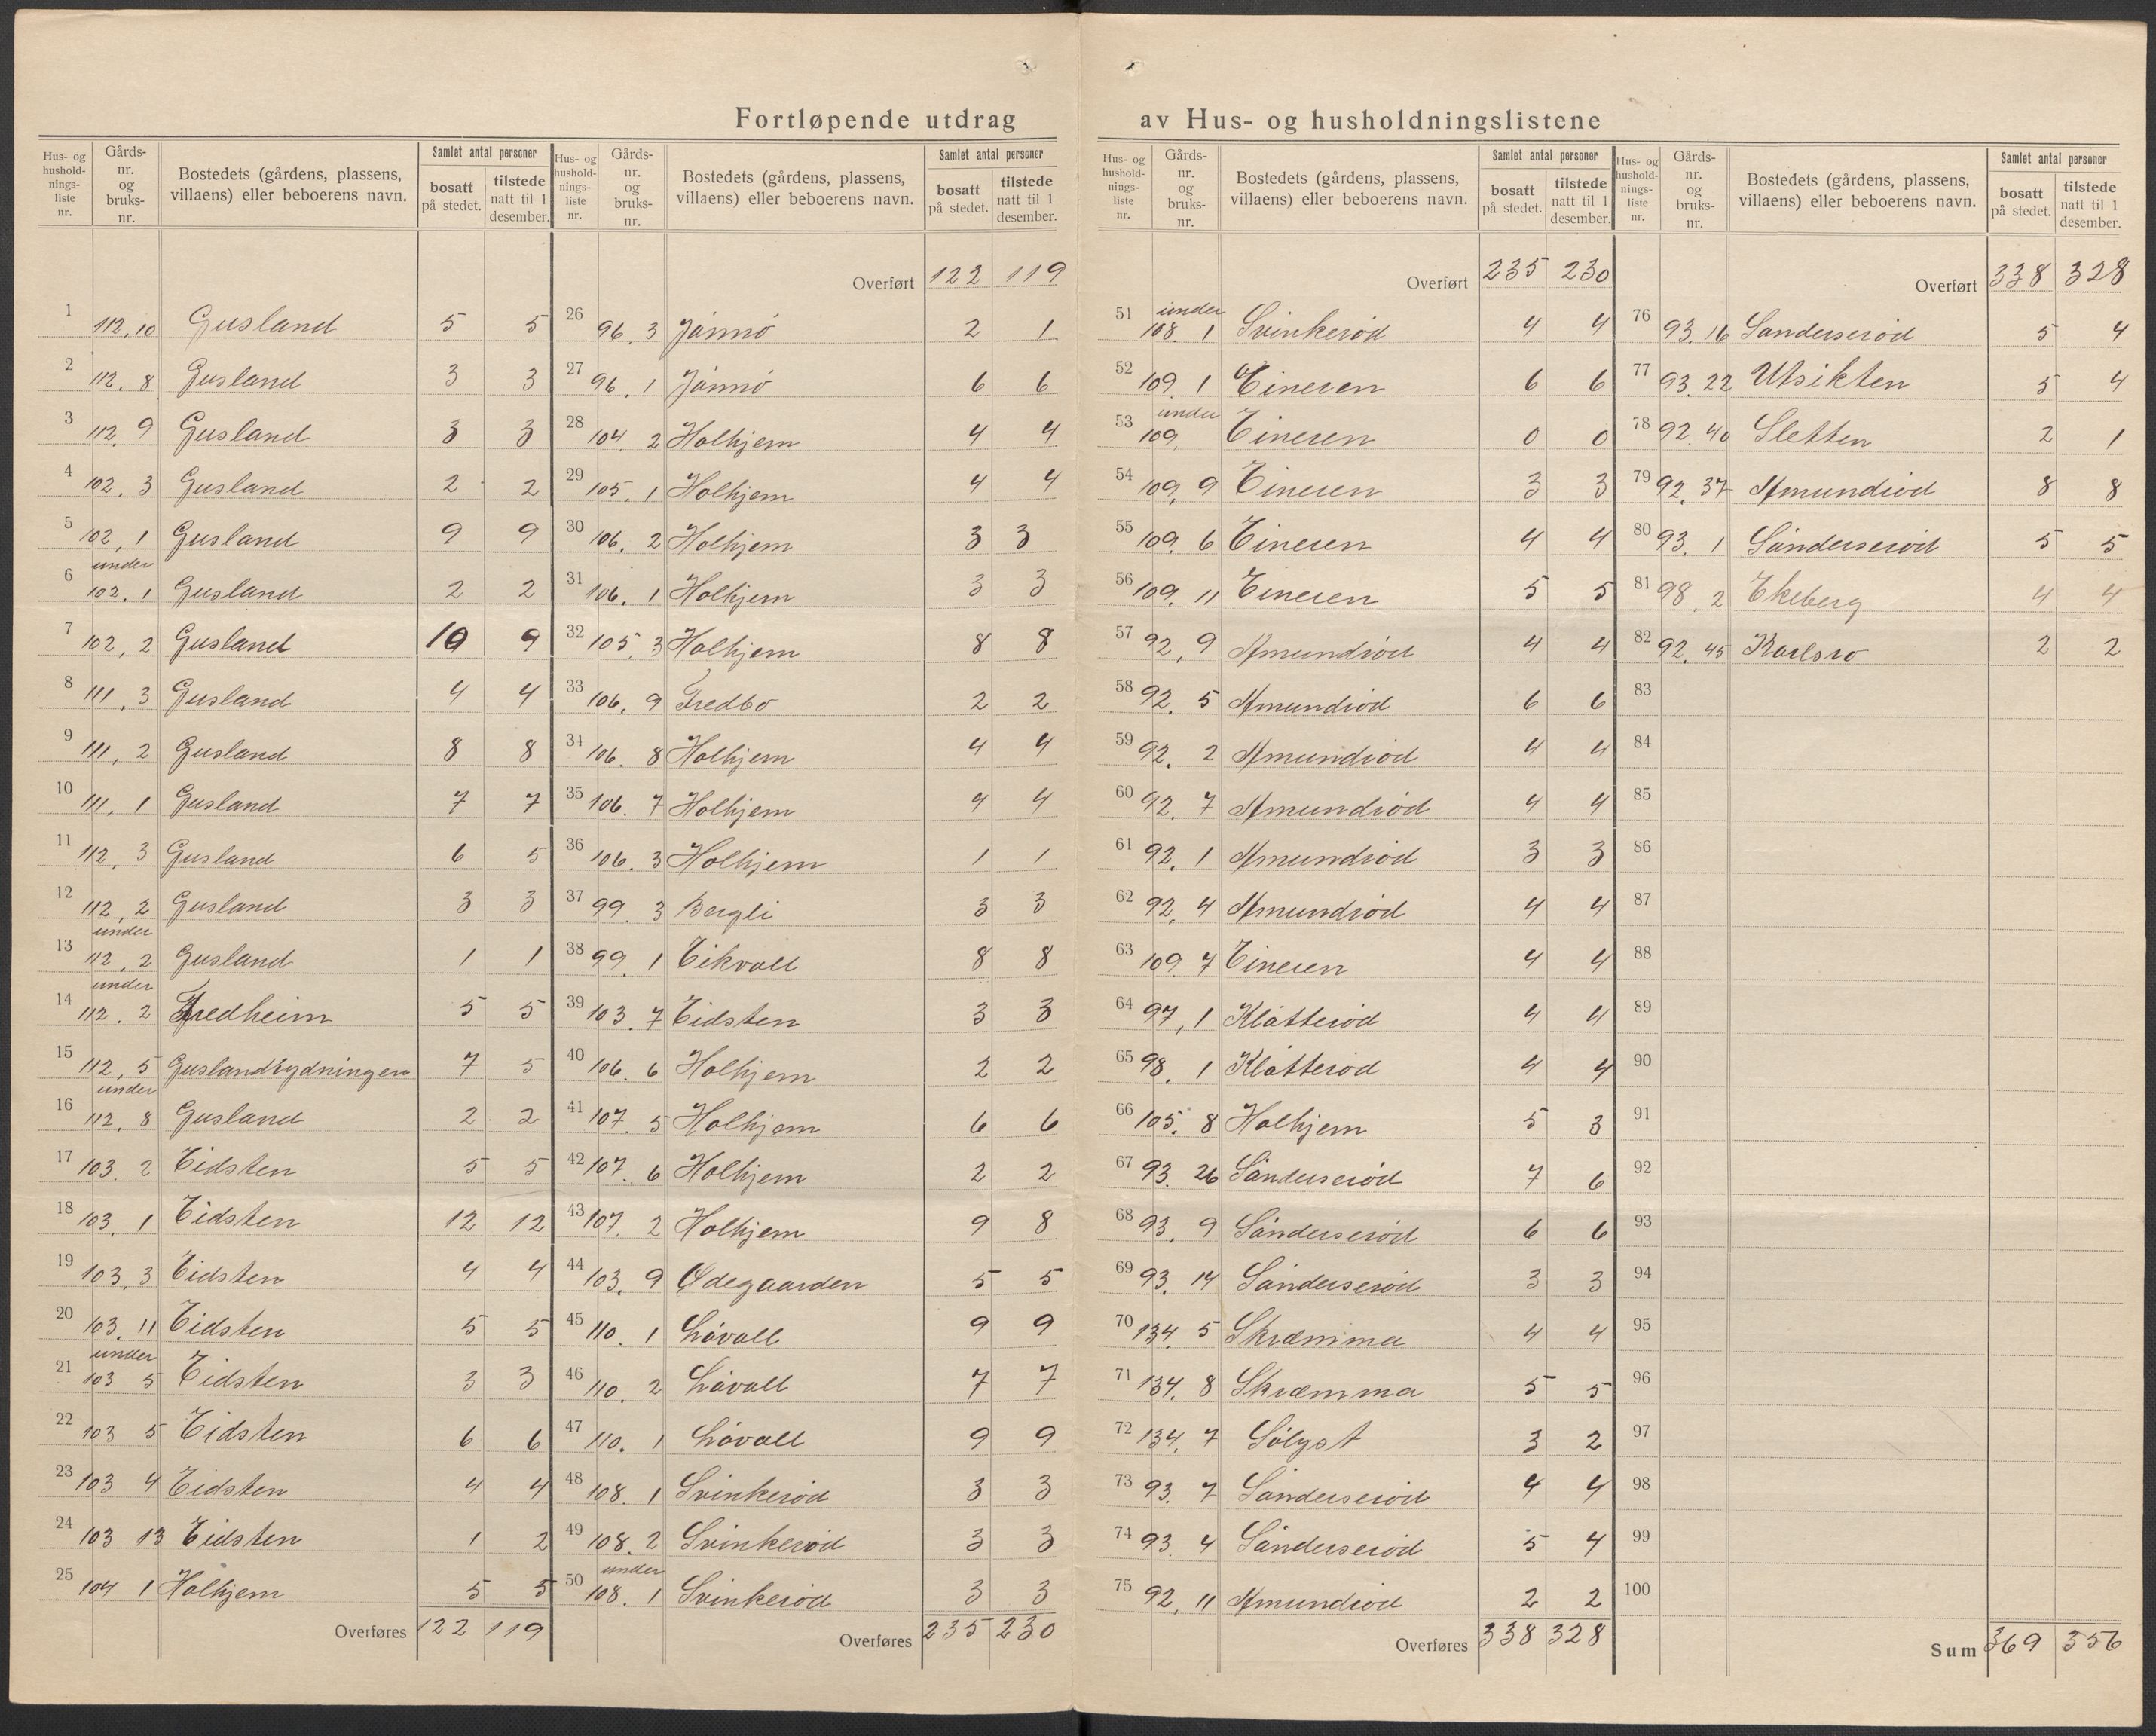 Fortløpende utdrag av Hus- og husholdningslistene
Hus- og hushold-nings-liste nr. | Gårds-nr. og bruks-nr. | Bostedets (gårdens, plassens, villaens) eller beboerens navn. | Samlet antal personer | bosatt på stedet. | tilstede natt til 1 desember.
1 112,10 Gusland 5 5
2 112. 8 Gusland 3 3
3 112. 9 Gusland 3 3
4 102. 3 Gusland 2 2
5 102, 1 Gusland 9 9
6 under 102. 1 Gusland 2 2
7 102, 2 Gusland 10 9
8 111, 3 Gusland 4 4
9 111, 2 Gusland 8 8
10 111, 1 Gusland 7 7
11 112, 3 Gusland 6 5
12 112, 2 Gusland 3 3
13 under 112, 2 Gusland 1 1
14 under 112. 2 Fredheim 5 5
15 112, 5 Guslandrydningen 7 5
16 under 112, 8 Gusland 2 2
17 103. 2 Eidsten 5 5
18 103, 1 Eidsten 12 12
19 103. 3 Eidsten 4 4
20 103. 11 Eidsten 5 5
21 under 103 5 Eidsten 3 3
22 103 5 Eidsten 6 6
23 103 4 Eidsten 4 4
24 103 13 Eidsten 1 2
25 104 1 Holhjem 5 5
Overføres 122 119
Hus- og hushold-nings-liste nr. | Gårds-nr. og bruks-nr. | Bostedets (gårdens, plassens, villaens) eller beboerens navn. | Samlet antal personer | bosatt på stedet. | tilstede natt til 1 desember.
Overført 122 119
26 96. 3 Jønnø 2 1
27 96. 1 Jønnø 6 6
28 104. 2 Holhjem 4 4
29 105. 1 Holhjem 4 4
30 106. 2 Holhjem 3 3
31 106. 1 Holhjem 3 3
32 105. 3 Holhjem 8 8
33 106. 9 Fredbo 2 2
34 106. 8 Holhjem 4 4
35 106. 7 Holhjem 4 4
36 106. 3 Holhjem 1 1
37 99. 3 Bergli 3 3
38 99. 1 Eikvoll 8 8
39 103. 7 Eidsten 3 3
40 106. 6 Holhjem 2 2
41 107. 5 Holhjem 6 6
42 107. 6 Holhjem 2 2
43 107. 2 Holhjem 9 8
44 103. 9 Ødegaarden 5 5
45 110. 1 Løvall 9 9
46 110. 2 Løvall 7 7
47 110. 1 Løvall 9 9
48 108. 1 Svinkerød 3 3
49 108. 2 Svinkerød 3 3
50 under 108. 1 Svinkerød 3 3
Overføres 235 230
Hus- og hushold-nings-liste nr. | Gårds-nr. og bruks-nr. | Bostedets (gårdens, plassens, villaens) eller beboerens navn. | Samlet antal personer | bosatt på stedet. | tilstede natt til 1 desember.
Overført 235 230
51 under 108. 1 Svinkerød 4 4
52 109. 1 Eineren 6 6
53 under 109, Eineren 0 0
54 109, 9 Eineren 3 3
55 109. 6 Eineren 4 4
56 109. 11 Eineren 5 5
57 92, 9 Amundrød 4 4
58 92. 5 Amundrød 6 6
59 92. 2 Amundrød 4 4
60 92. 7 Amundrød 4 4
61 92. 1 Amundrød 3 3
62 92, 4 Amundrød 4 4
63 109. 7 Eineren 4 4
64 97, 1 Kløtterød 4 4
65 98. 1 Kløtterød 4 4
66 105. 8 Holhjem 5 3
67 93. 26 Sønderserød 7 6
68 93, 9 Sønderserød 6 6
69 93. 14 Sønderserød 3 3
70 134. 5 Skræmma 4 4
71 134. 8 Skræmma 5 5
72 134. 7 Sølyst 3 2
73 93. 7 Sønderserød 4 4
74 93. 4 Sønderserød 5 4
75 92, 11 Amundrød 2 2
Overføres 338 328
Hus- og hushold-nings-liste nr. | Gårds-nr. og bruks-nr. | Bostedets (gårdens, plassens, villaens) eller beboerens navn. | Samlet antal personer | bosatt på stedet. | tilstede natt til 1 desember.
Overført 338 328
76 93. 16 Sønderserød 5 4
77 93. 22 Utsikten 5 4
78 92. 40 Sletten 2 1
79 92. 37 Amundrød 8 8
80 93. 1 Sønderserød 5 5
81 98. 2 Ekeberg 4 4
82 92. 45 Karlsro 2 2
83
84
85
86
87
88
89
90
91
92
93
94
95
96
97
98
99
100
Sum 369 356